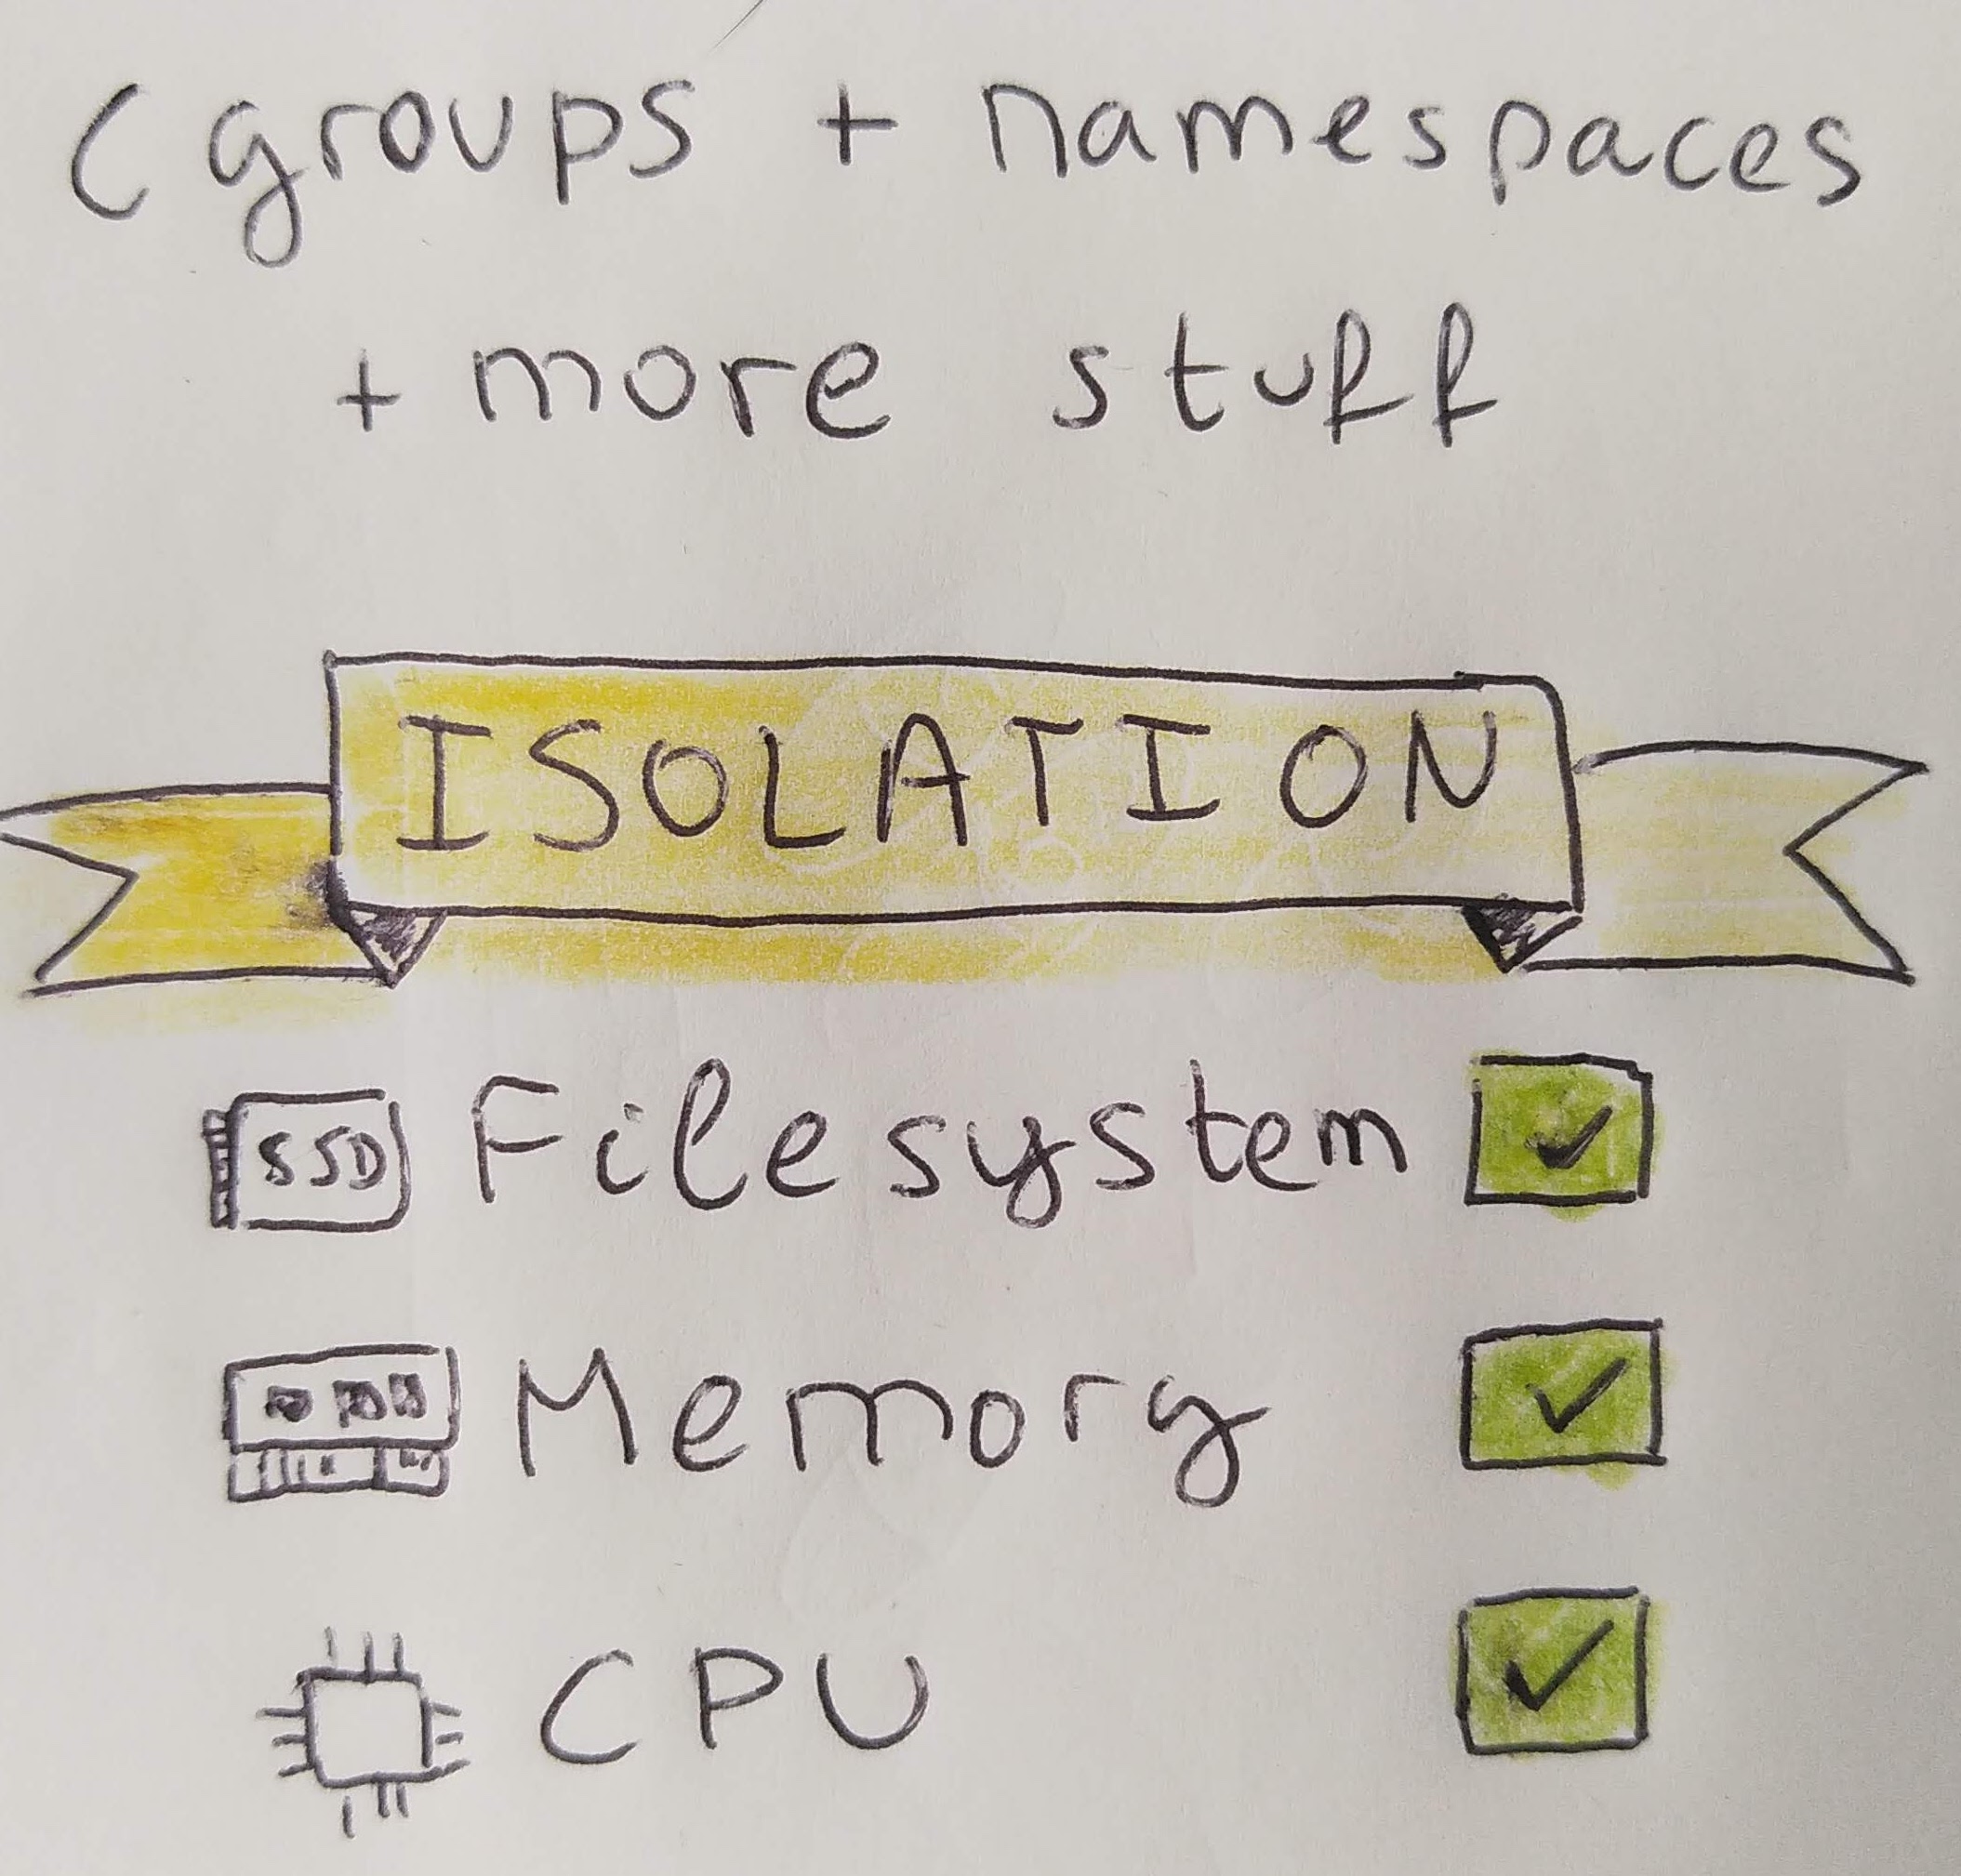 Cgroups + namespaces
+ more stuff
ISOLATION
SSD Filesystem
Memory
CPU